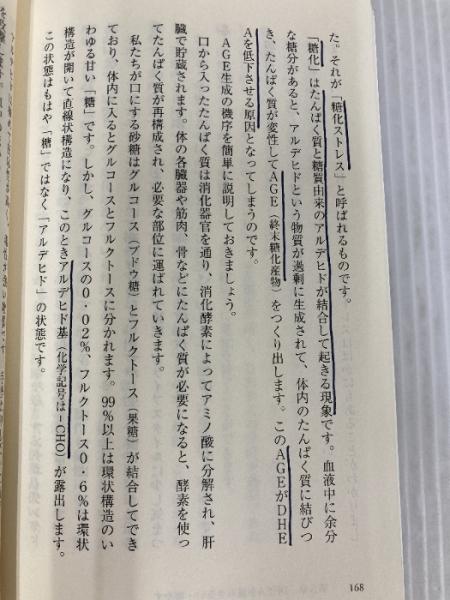 た。それが「糖化ストレス」と呼ばれるものです。
「糖化」はたんぱく質と糖質由来のアルデヒドが結合して起きる現象です。血液中に余分
な糖分があると、アルデヒドという物質が過剰に生成されて、体内のたんぱく質に結びつ
き、たんぱく質が変性してAGE（終末糖化産物）をつくり出します。このAGEがDHE
Aを低下させる原因となってしまうのです。
AGE生成の機序を簡単に説明しておきましょう。
口から入ったたんぱく質は消化器官を通り、消化酵素によってアミノ酸に分解され、肝
臓で貯蔵されます。体の各臓器や筋肉、骨などにたんぱく質が必要になると、酵素を使っ
てたんぱく質が再構成され、必要な部位に運ばれていきます。
私たちが口にする砂糖はグルコース（ブドウ糖）とフルクトース（果糖）が結合してでき
ており、体内に入るとグルコースとフルクトースに分かれます。99％以上は環状構造のい
わゆる甘い「糖」です。しかし、グルコースの0・02％、フルクトース0・6％は環状
構造が開いて直線状構造になり、このときアルデヒド基（化学記号は−CHO）が露出します。
この状態はもはや「糖」ではなく「アルデヒド」の状態です。
168